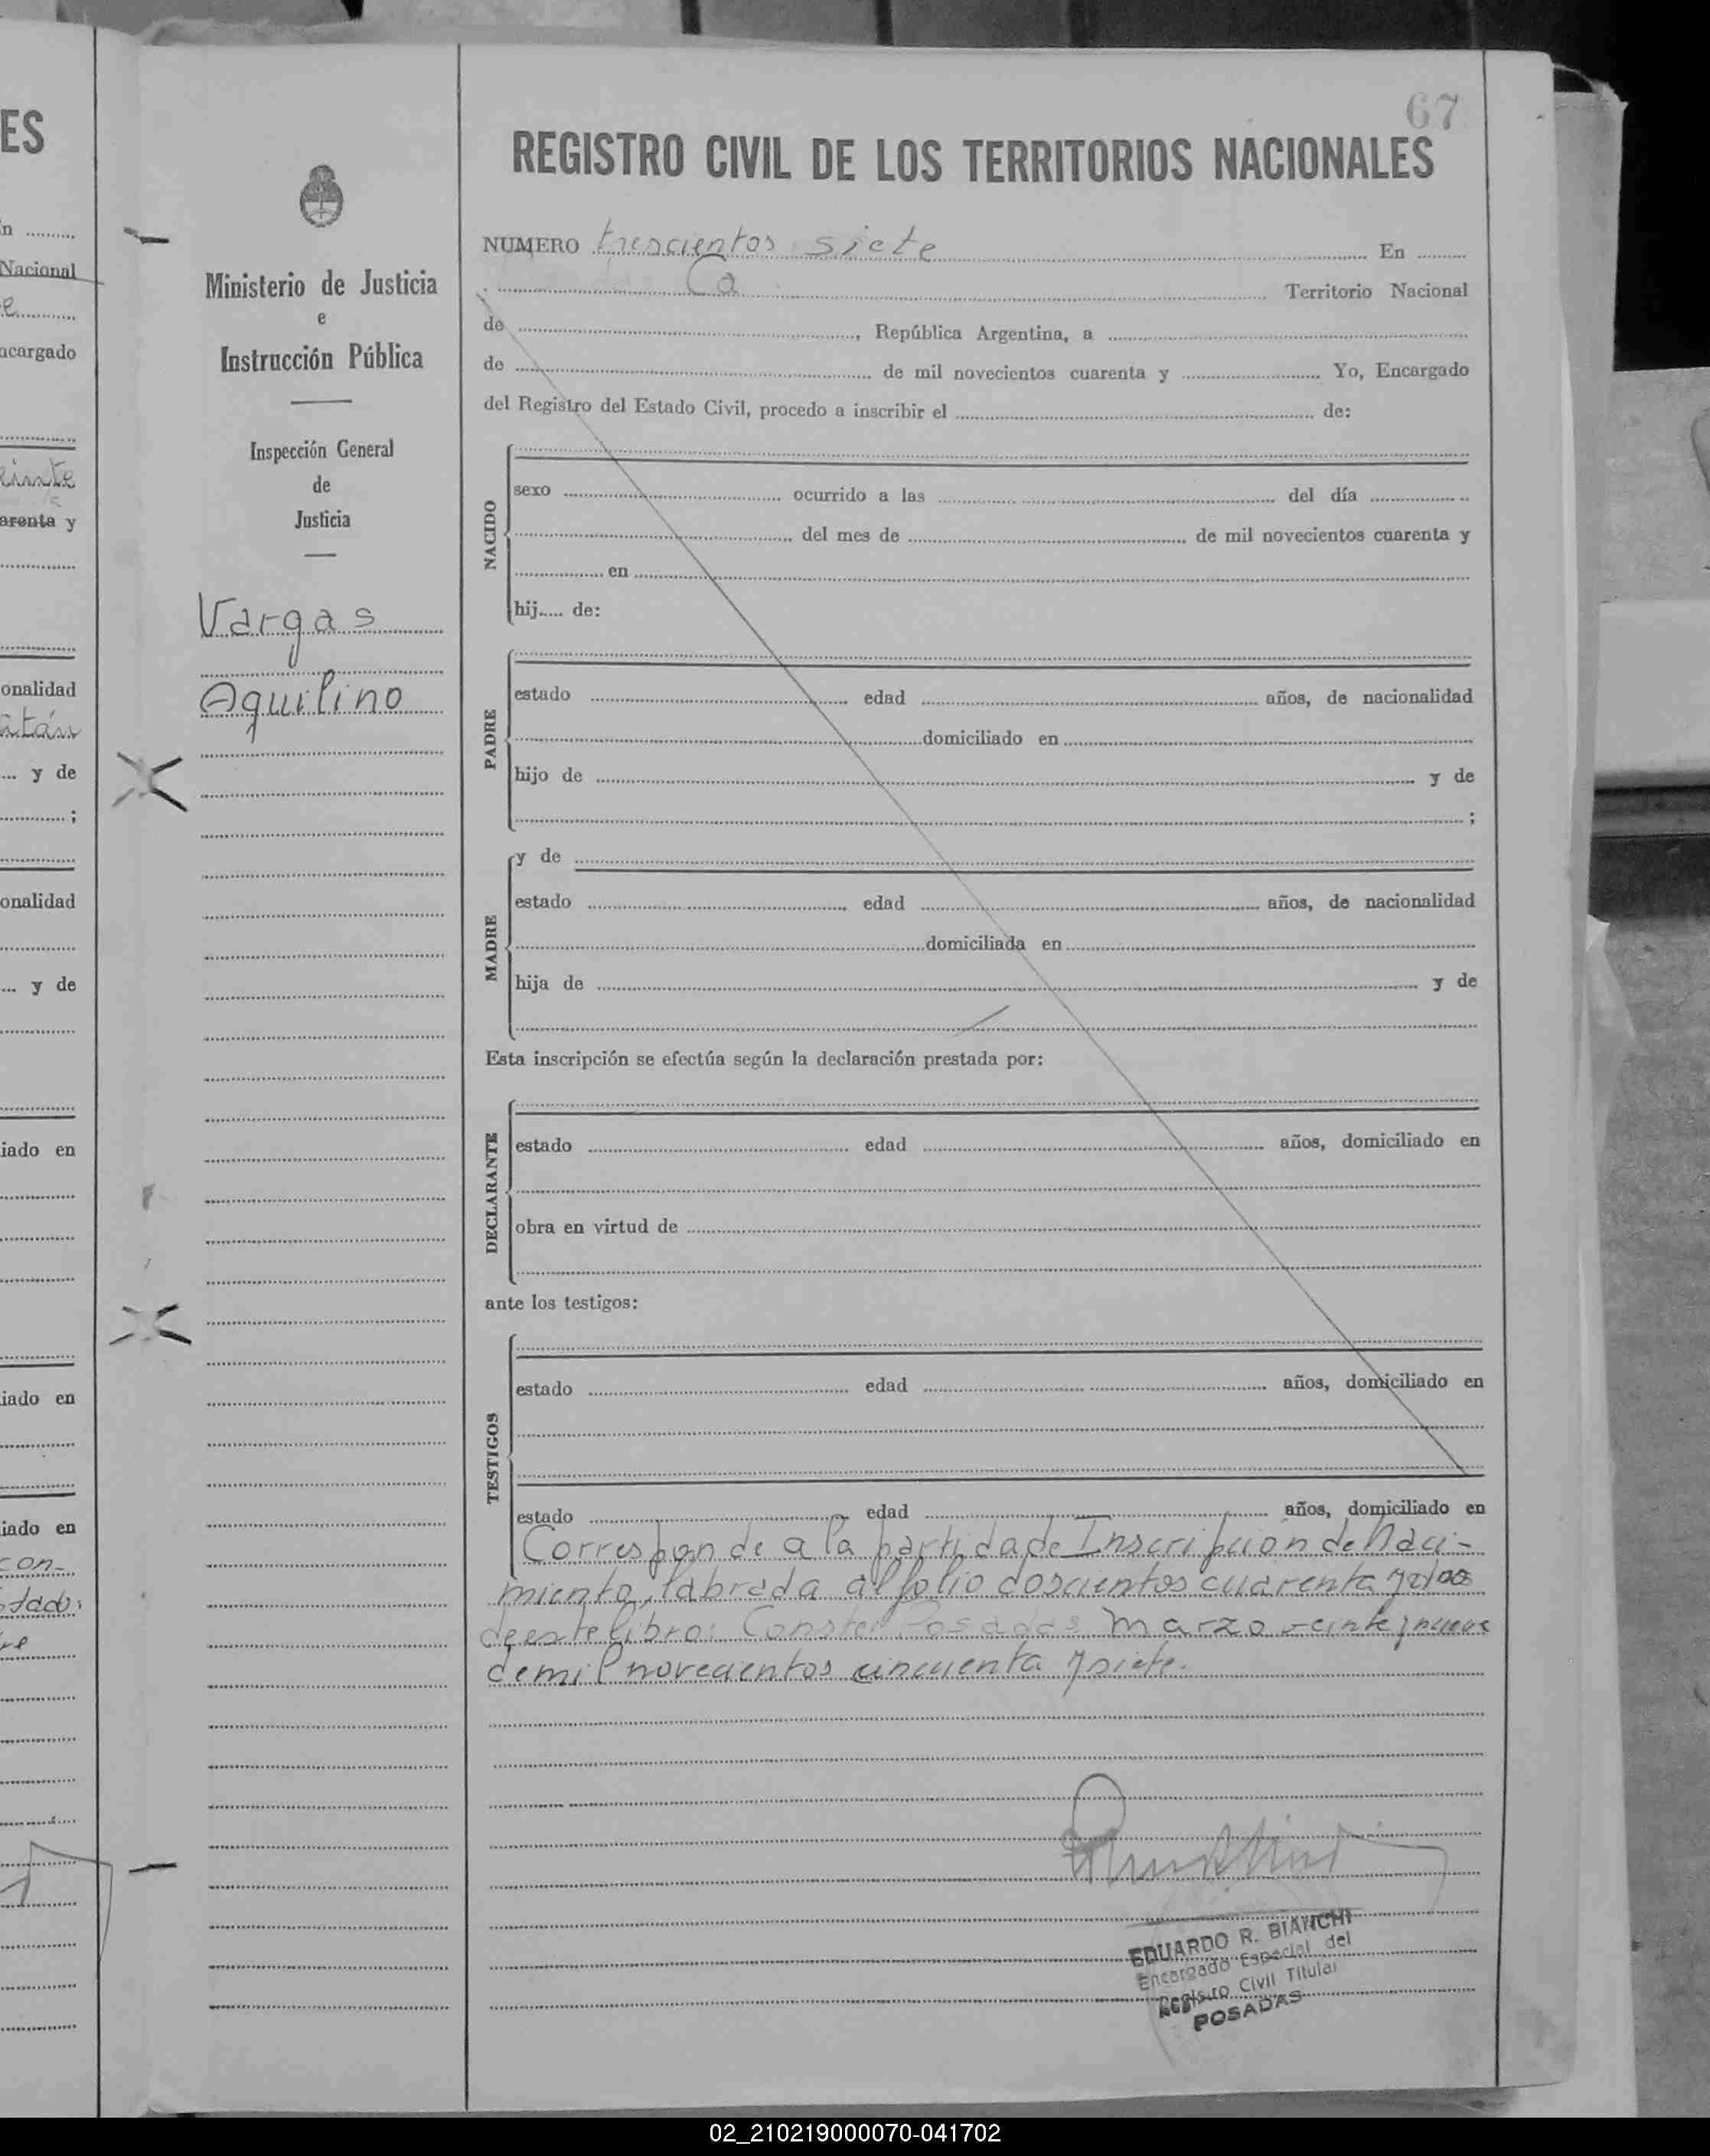 ES
n
Nacional
e
ncargado
einte
arenta y
onalidad
atán
y de
;
onalidad
y de
iado en
iado en
iado en
con-
stado:
re
Ministerio de Justicia
e
Instrucción Pública
Inspección General
de
Justicia
Vargas
Aquilino
67
REGISTRO CIVIL DE LOS TERRITORIOS NACIONALES
NUMERO trescientos siete En
Ca Territorio Nacional
de , República Argentina, a
de de mil novecientos cuarenta y Yo, Encargado
del Registro del Estado Civil, procedo a inscribir el de:
NACIDO
sexo ocurrido a las del día
del mes de de mil novecientos cuarenta y
en
hij..... de:
PADRE
estado edad años, de nacionalidad
domiciliado en
hijo de y de
;
MADRE
y de
estado edad años, de nacionalidad
domiciliada en
hija de y de
Esta inscripción se efectúa según la declaración prestada por:
DECLARANTE
estado edad años, domiciliado en
obra en virtud de
ante los testigos:
TESTIGOS
estado edad años, domiciliado en
estado edad años, domiciliado en
Corresponde a la partida de Inscripción de Naci-
miento, labrada al folio doscientos cuarenta y dos
de este libro: Conste: Posadas Marzo veinte y nueve
de mil novecientos cincuenta y siete.
EDUARDO R. BIANCHI
Encargado Especial del
Registro Civil Titular
POSADAS
02_210219000070-041702